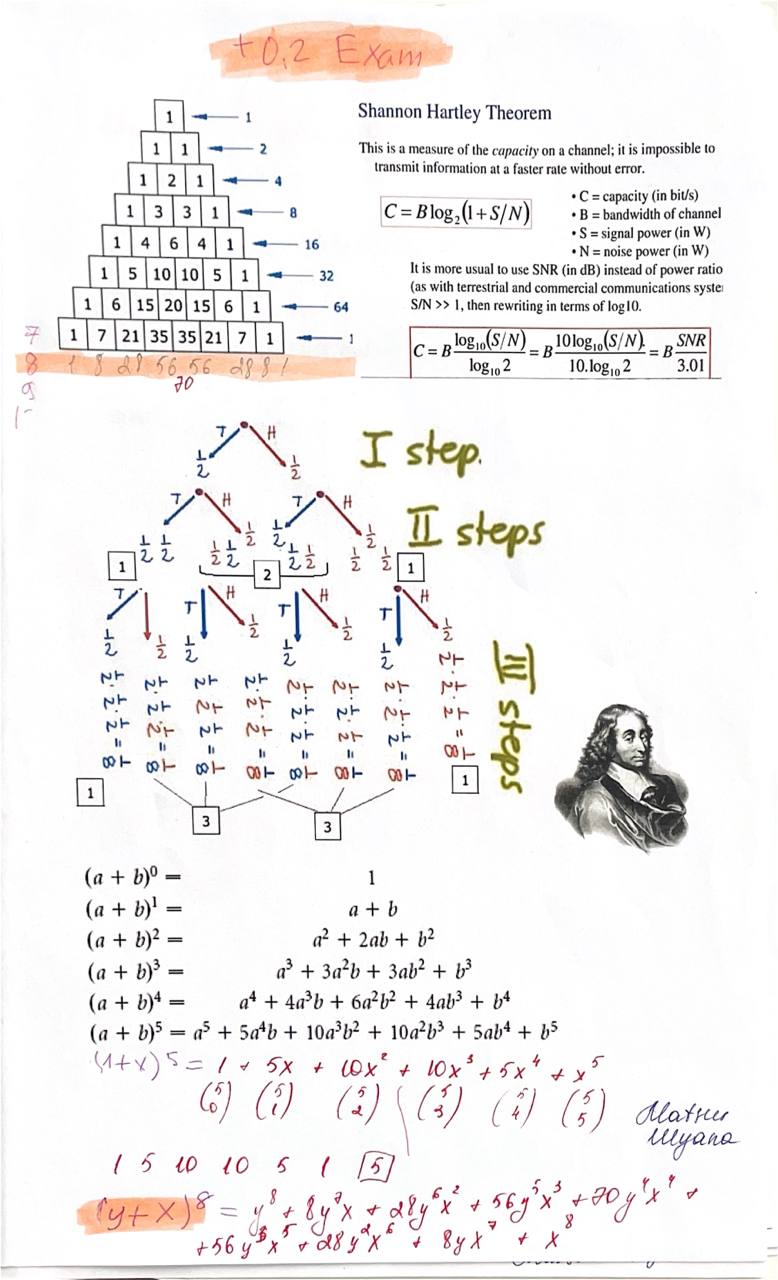 +0,2 Exam
1 1
1 1 2
1 2 1 4
1 3 3 1 8
1 4 6 4 1 16
1 5 10 10 5 1 32
1 6 15 20 15 6 1 64
7 1 7 21 35 35 21 7 1 1
8 1 8 28 56 56 28 8 1
70
9
Shannon Hartley Theorem
This is a measure of the capacity on a channel; it is impossible to
transmit information at a faster rate without error.
C = B log₂(1 + S/N)
• C = capacity (in bit/s)
• B = bandwidth of channel
• S = signal power (in W)
• N = noise power (in W)
It is more usual to use SNR (in dB) instead of power ratio
(as with terrestrial and commercial communications syste
S/N >> 1, then rewriting in terms of log10.
C = B log₁₀(S/N) / log₁₀ 2 = B 10 log₁₀(S/N) / 10.log₁₀ 2 = B SNR / 3.01
T H
1/2 1/2
I step.
T H T H
1/2 1/2
II steps
1/2 1/2 1/2 1/2 1/2 1/2 1/2 1/2
1 2 1
T H T H T H
1/2 1/2 1/2 1/2 1/2 1/2 1/2 1/2
III steps
1/2·1/2·1/2=1/8 1/2·1/2·1/2=1/8 1/2 1/2 1/2=1/8 1/2·1/2·1/2 1/8 1/2·1/2·1/2=1/8 1/2·1/2·1/2 1/8 1/2·1/2·1/2=1/8 1/2·1/2·1/2=1/8
1 3 3 1
(a + b)⁰ = 1
(a + b)¹ = a + b
(a + b)² = a² + 2ab + b²
(a + b)³ = a³ + 3a²b + 3ab² + b³
(a + b)⁴ = a⁴ + 4a³b + 6a²b² + 4ab³ + b⁴
(a + b)⁵ = a⁵ + 5a⁴b + 10a³b² + 10a²b³ + 5ab⁴ + b⁵
(1+x)⁵ = 1 + 5x + 10x² + 10x³ + 5x⁴ + x⁵
(5 0) (5 1) (5 2) (5 3) (5 4) (5 5)
1 5 10 10 5 1 5
(y+x)⁸ = y⁸ + 8y⁷x + 28y⁶x² + 56y⁵x³ + 70y⁴x⁴ +
+56y³x⁵ + 28y²x⁶ + 8yx⁷ + x⁸